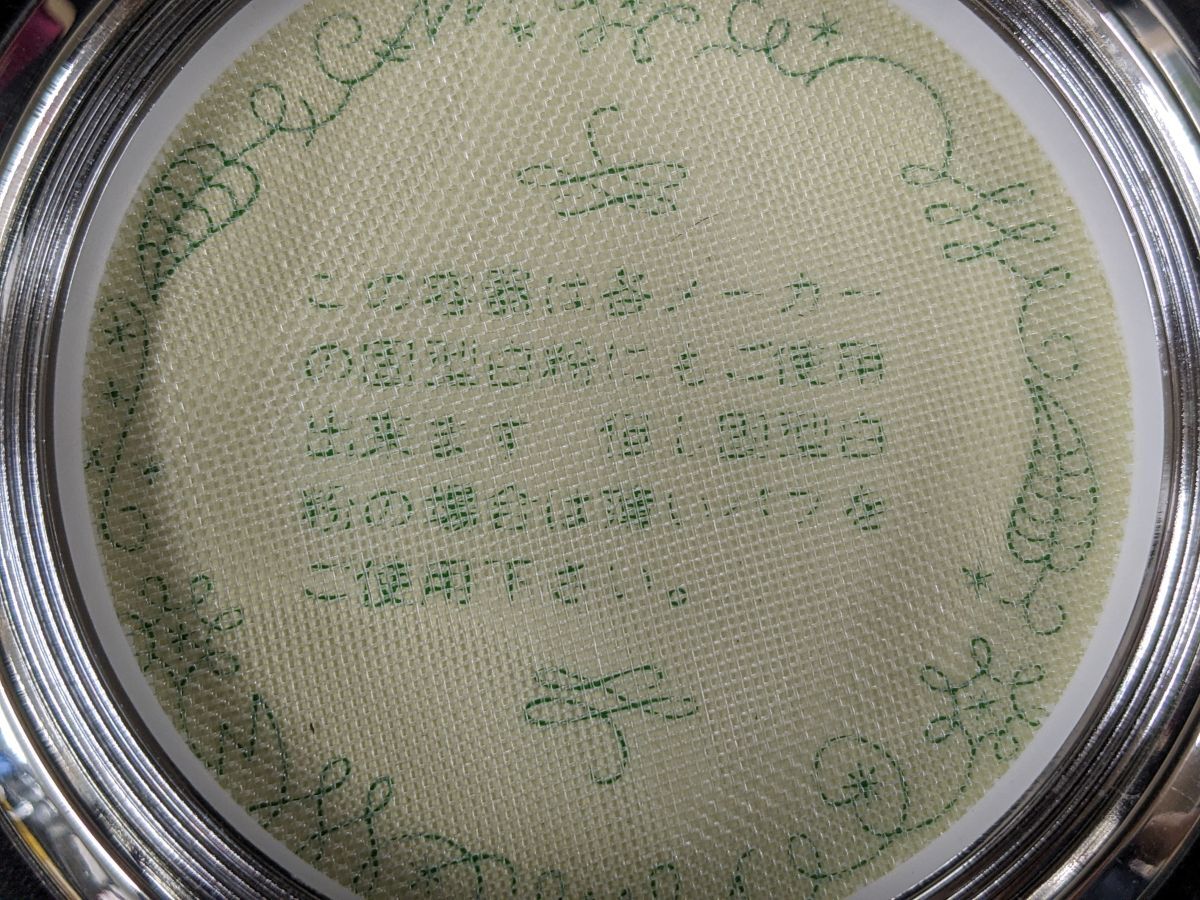 この容器は各メーカー
の固型白粉にもご使用
出来ます 但し固型白
粉の場合は薄いパフを
ご使用下さい。